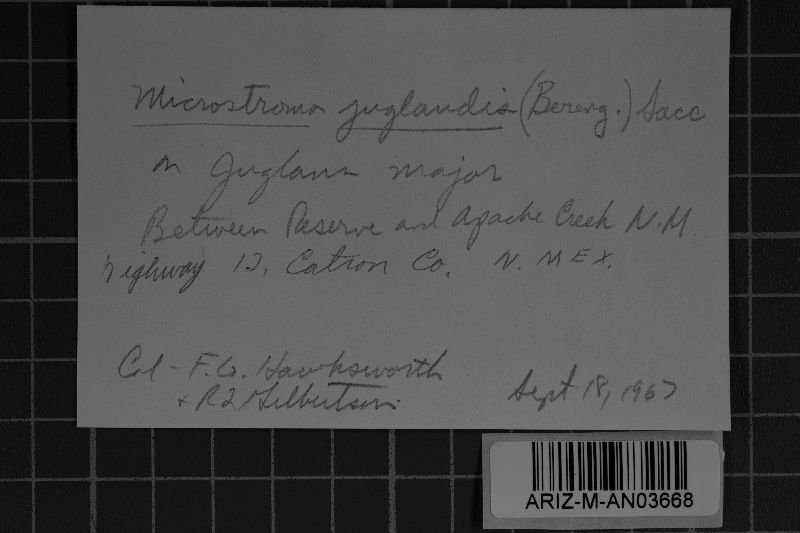 Microstroma juglandis (Bereng.) Sacc
on Juglans major
Between Reserve and Apache Creek N.M.
highway 12, Catron Co. N. MEX.
Col - F.G. Hawksworth
+ RL Gilbertson.
Sept 18, 1967
ARIZ-M-AN03668